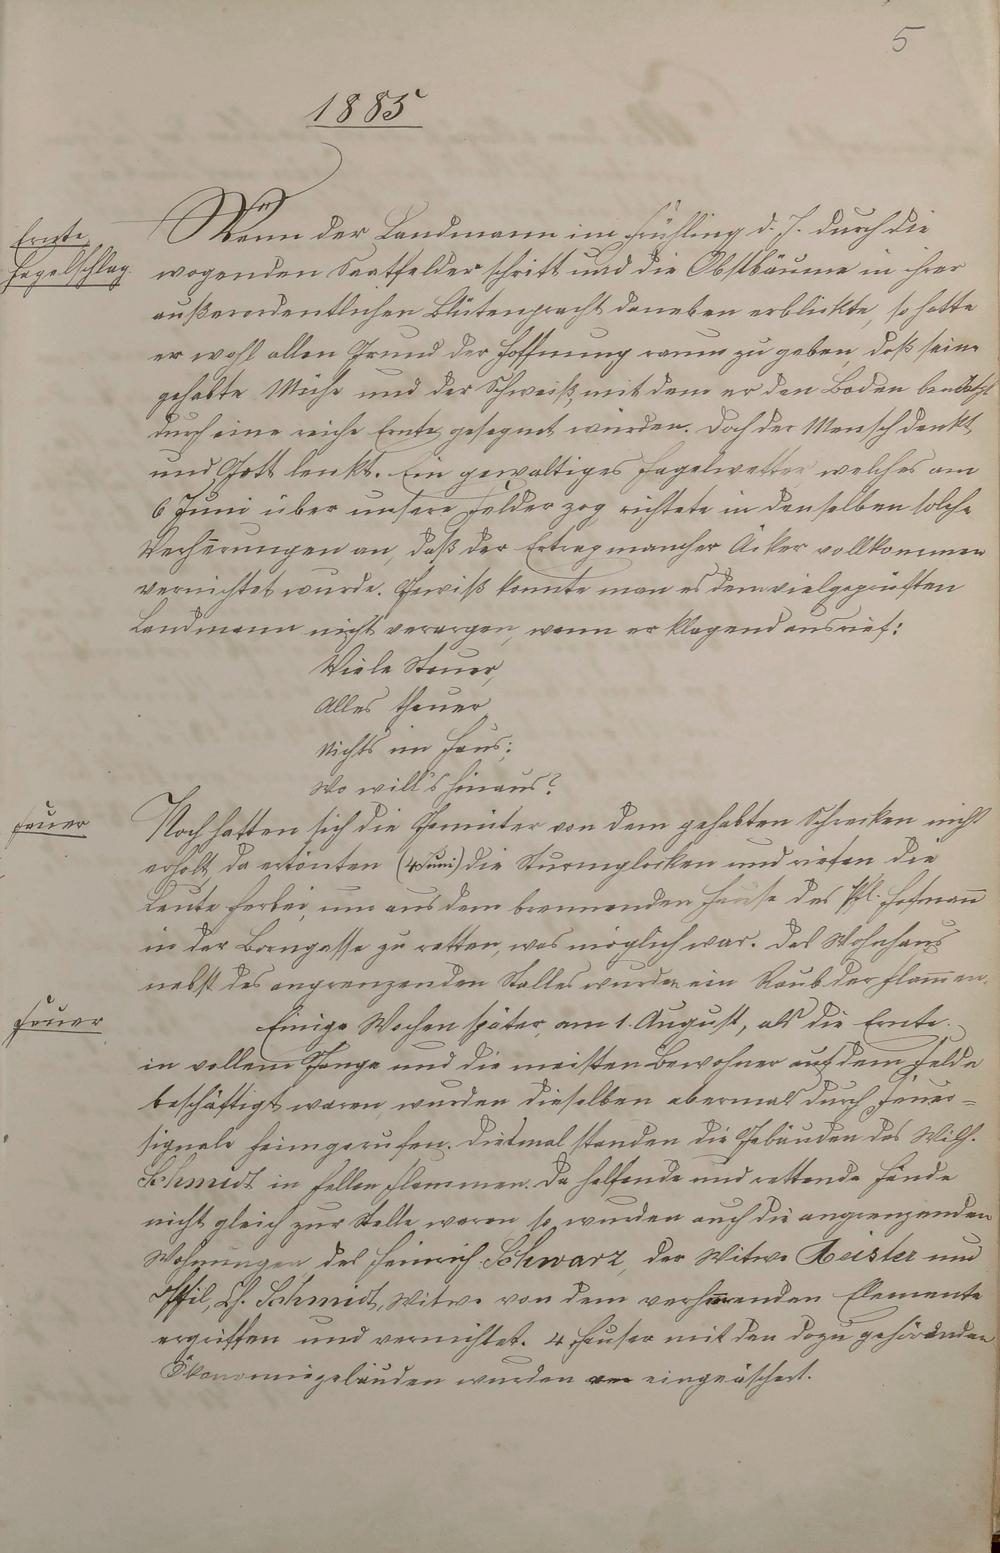 5
1885
Ernte
Hagelschlag.
Wenn der Landmann im Frühling d. J. durch die
wogenden Saatfelder schritt und die Obstbäume in ihrer
außerordentlichen Blütenpracht daneben erblickte, so hatte
er wohl allen Grund der Hoffnung raum zu geben, daß seine
gehabte Mühe und der Schweiß, mit dem er den Boden benetzt
durch eine reiche Ernte gesegnet würden. Doch der Mensch denkt
und Gott lenkt. Ein gewaltiges Hagelwetter welches am
6 Juni über unsere Felder zog richtete in denselben solche
Verherungen an, daß der Ertrag mancher Äcker vollkommen
vernichtet wurde. Gewiß konnte man es dem vielgeprüften
Landmann nicht verargen, wenn er klagend ausrief:
Viele Steuer,
Alles theuer
Nichts im Haus;
Wo will's hinaus?
Feuer
Noch hatten sich die Gemüter von dem gehabten Schrecken nicht
erholt, da ertönten (4 Juni) die Sturmglocken und riefen die
Leute herbei, um aus dem brennenden Hause des Phl. Hofmann
in der Borngasse zu retten, was möglich war. Das Wohnhaus
nebst des angrenzenden Stalles wurden ein Raub der Flammen.
Feuer
Einige Wochen später, am 1. August, als die Ernte
in vollem Gange und die meisten Bewohner auf dem Felde
beschäftigt waren, wurden dieselben abermals durch Feuer-
signale heimgerufen. Diesmal standen die Gebäuden des Wilh.
Schmidt in hellen Flammen. Da helfende und rettende Hände
nicht gleich zur Stelle waren so wurden auch die angrenzenden
Wohnungen des Heinrich Schwarz, der Witwe Meister und
Phil. Ch. Schmidt, Witwe von dem verherenden Elemente
ergriffen und vernichtet. 4 Häuser mit den dazu gehörenden
Ökonomiegebäuden wurden eingeäschert.